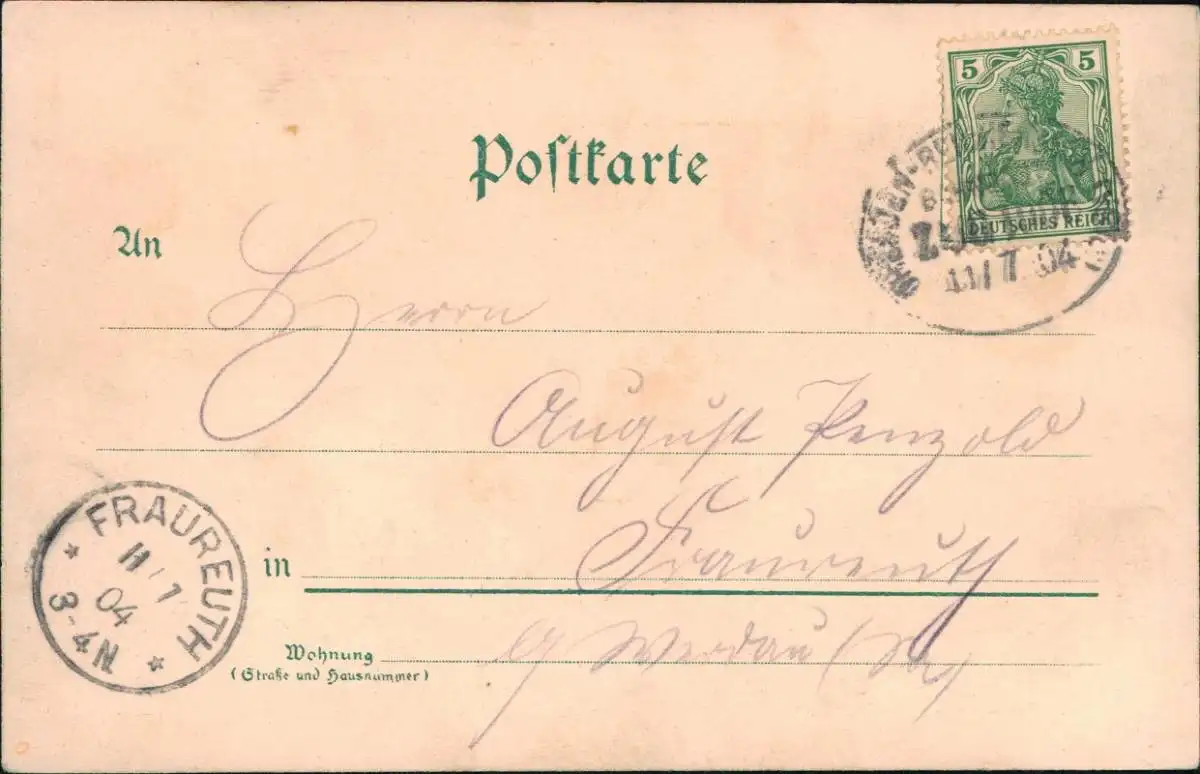 5 5
DEUTSCHES REICH
11/7 04
Postkarte
An
Herrn
August Penzold
in Fraureuth
Wohnung
(Straße und Hausnummer)
b/ Werdau
FRAUREUTH
11/7
04
3-4N